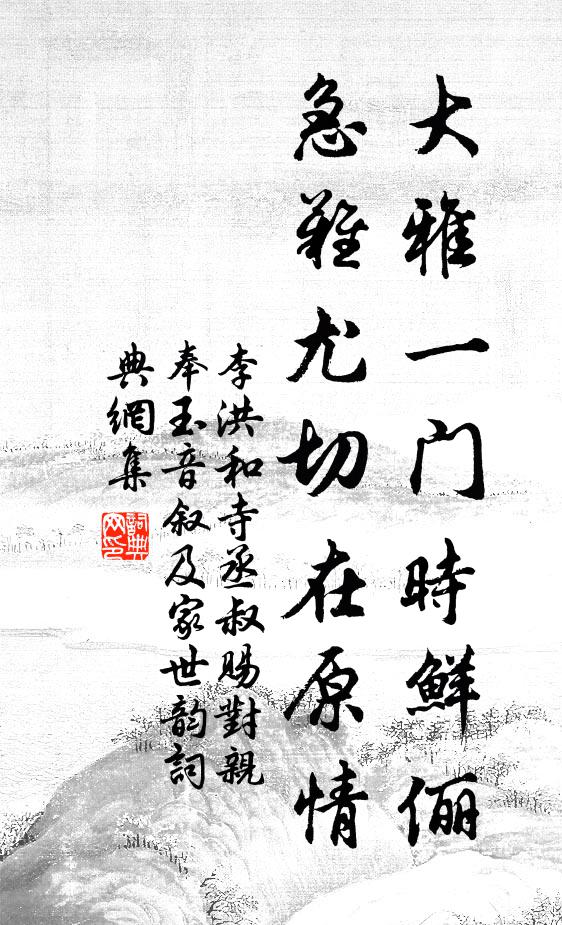 大雅一门時鮮儷
急難尤切在原情
李洪和寺丞叔賜對親
奉玉音叙及家世韵詞
典網集
詞典
网印